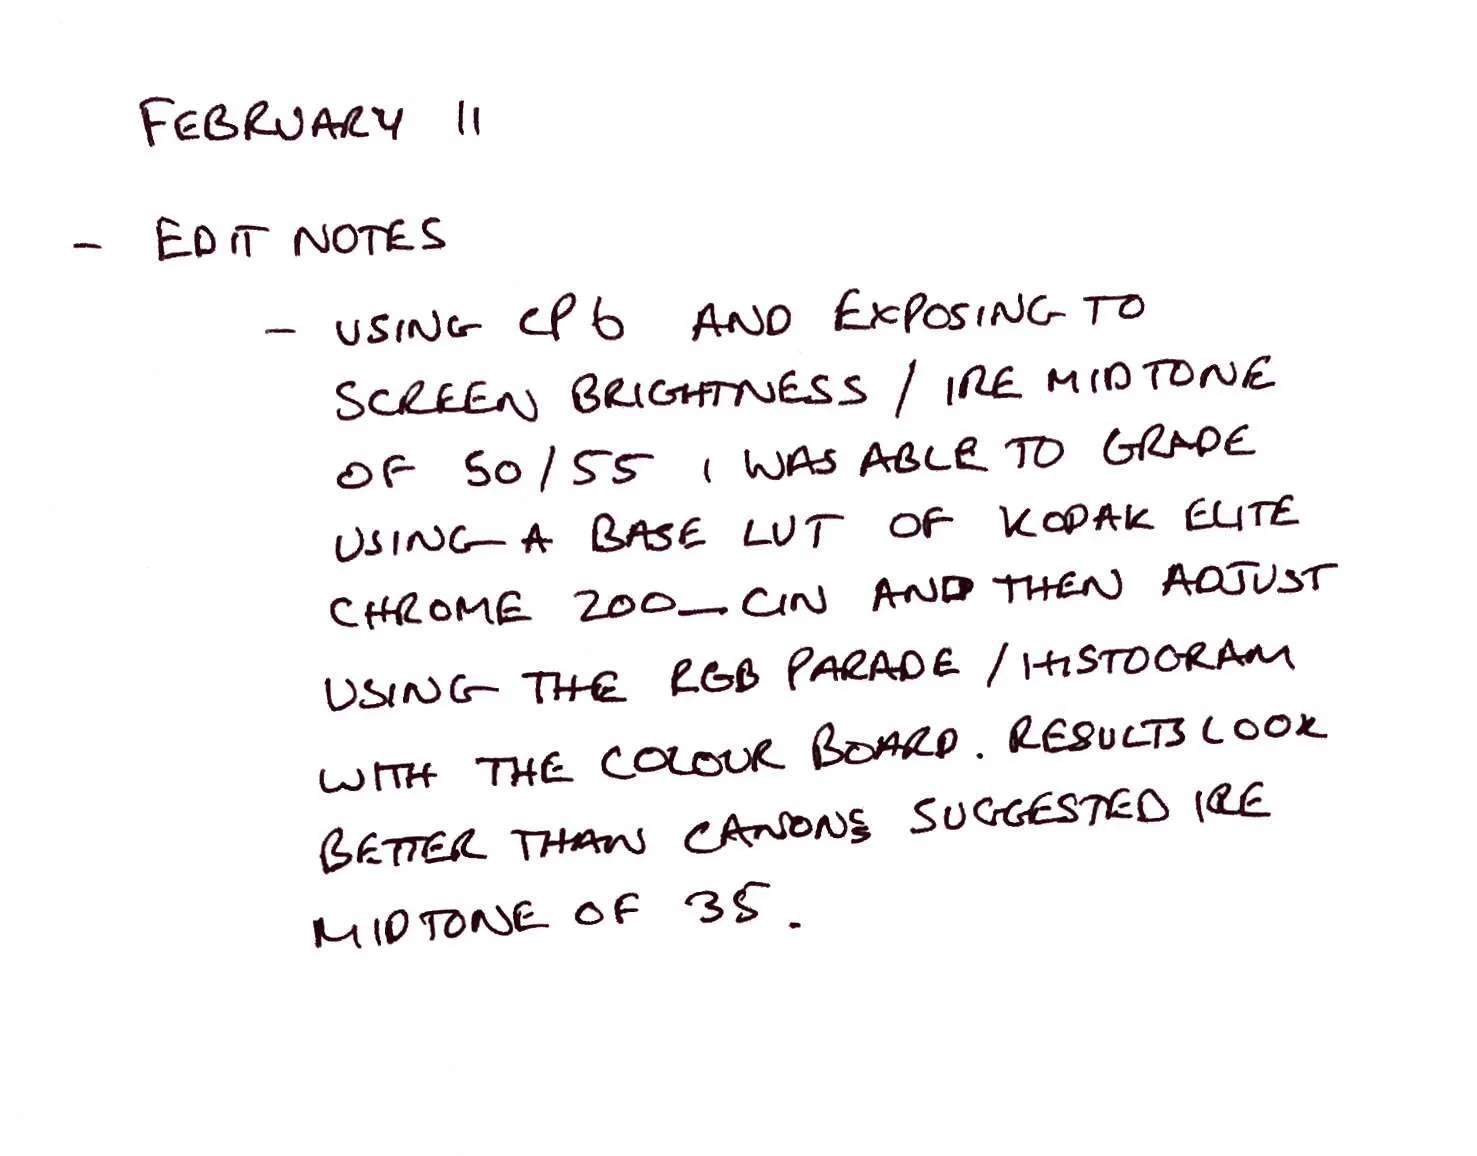 FEBRUARY 11
- EDIT NOTES
- USING CP6 AND EXPOSING TO
SCREEN BRIGHTNESS / IRE MIDTONE
OF 50/55 I WAS ABLE TO GRADE
USING A BASE LUT OF KODAK ELITE
CHROME 200_CIN AND THEN ADJUST
USING THE RGB PARADE / HISTOGRAM
WITH THE COLOUR BOARD. RESULTS LOOK
BETTER THAN CANONS SUGGESTED IRE
MIDTONE OF 35.